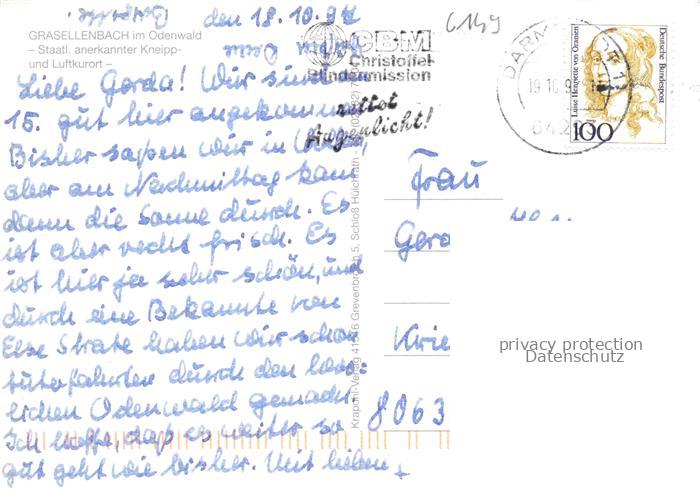 den 18.10.94
GRASELLENBACH im Odenwald
– Staatl. anerkannter Kneipp-
und Luftkurort –
Liebe Gerda! Wir sind am
15. gut hier angekommen,
Bisher saßen wir in
aber am Nachmittag kam
dann die Sonne durch. Es
ist aber recht frisch. Es
ist hier ja sehr schön, und
durch eine Bekannte von
Else Strate haben wir schon
durch den herr=
lichen Odenwald gemacht.
Ich hoffe, daß es weiter so
gut geht wie bisher. Mit lieben
C149
CBM
Christoffel-
Blindenmission
rettet
Augenlicht!
DARM
19.10.9
642
Deutsche Bundespost
Luise Henriette von Oranien
100
Krapohl-Verlag 41516 Grevenbroich 5, Schloß Hülchrath
Frau
Gerd
Krie
8063
privacy protection
Datenschutz